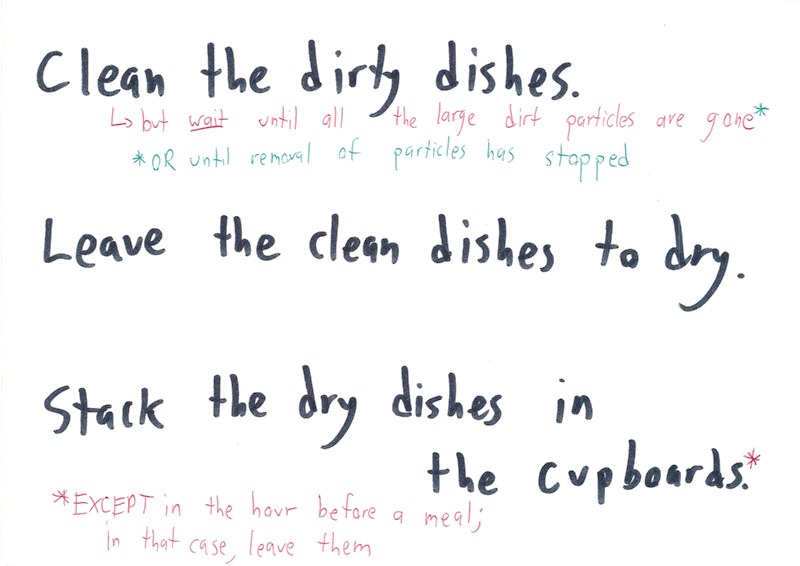 Clean the dirty dishes.
↳ but wait until all the large dirt particles are gone*
*OR until removal of particles has stopped
Leave the clean dishes to dry.
Stack the dry dishes in
the cupboards.*
*EXCEPT in the hour before a meal;
in that case, leave them